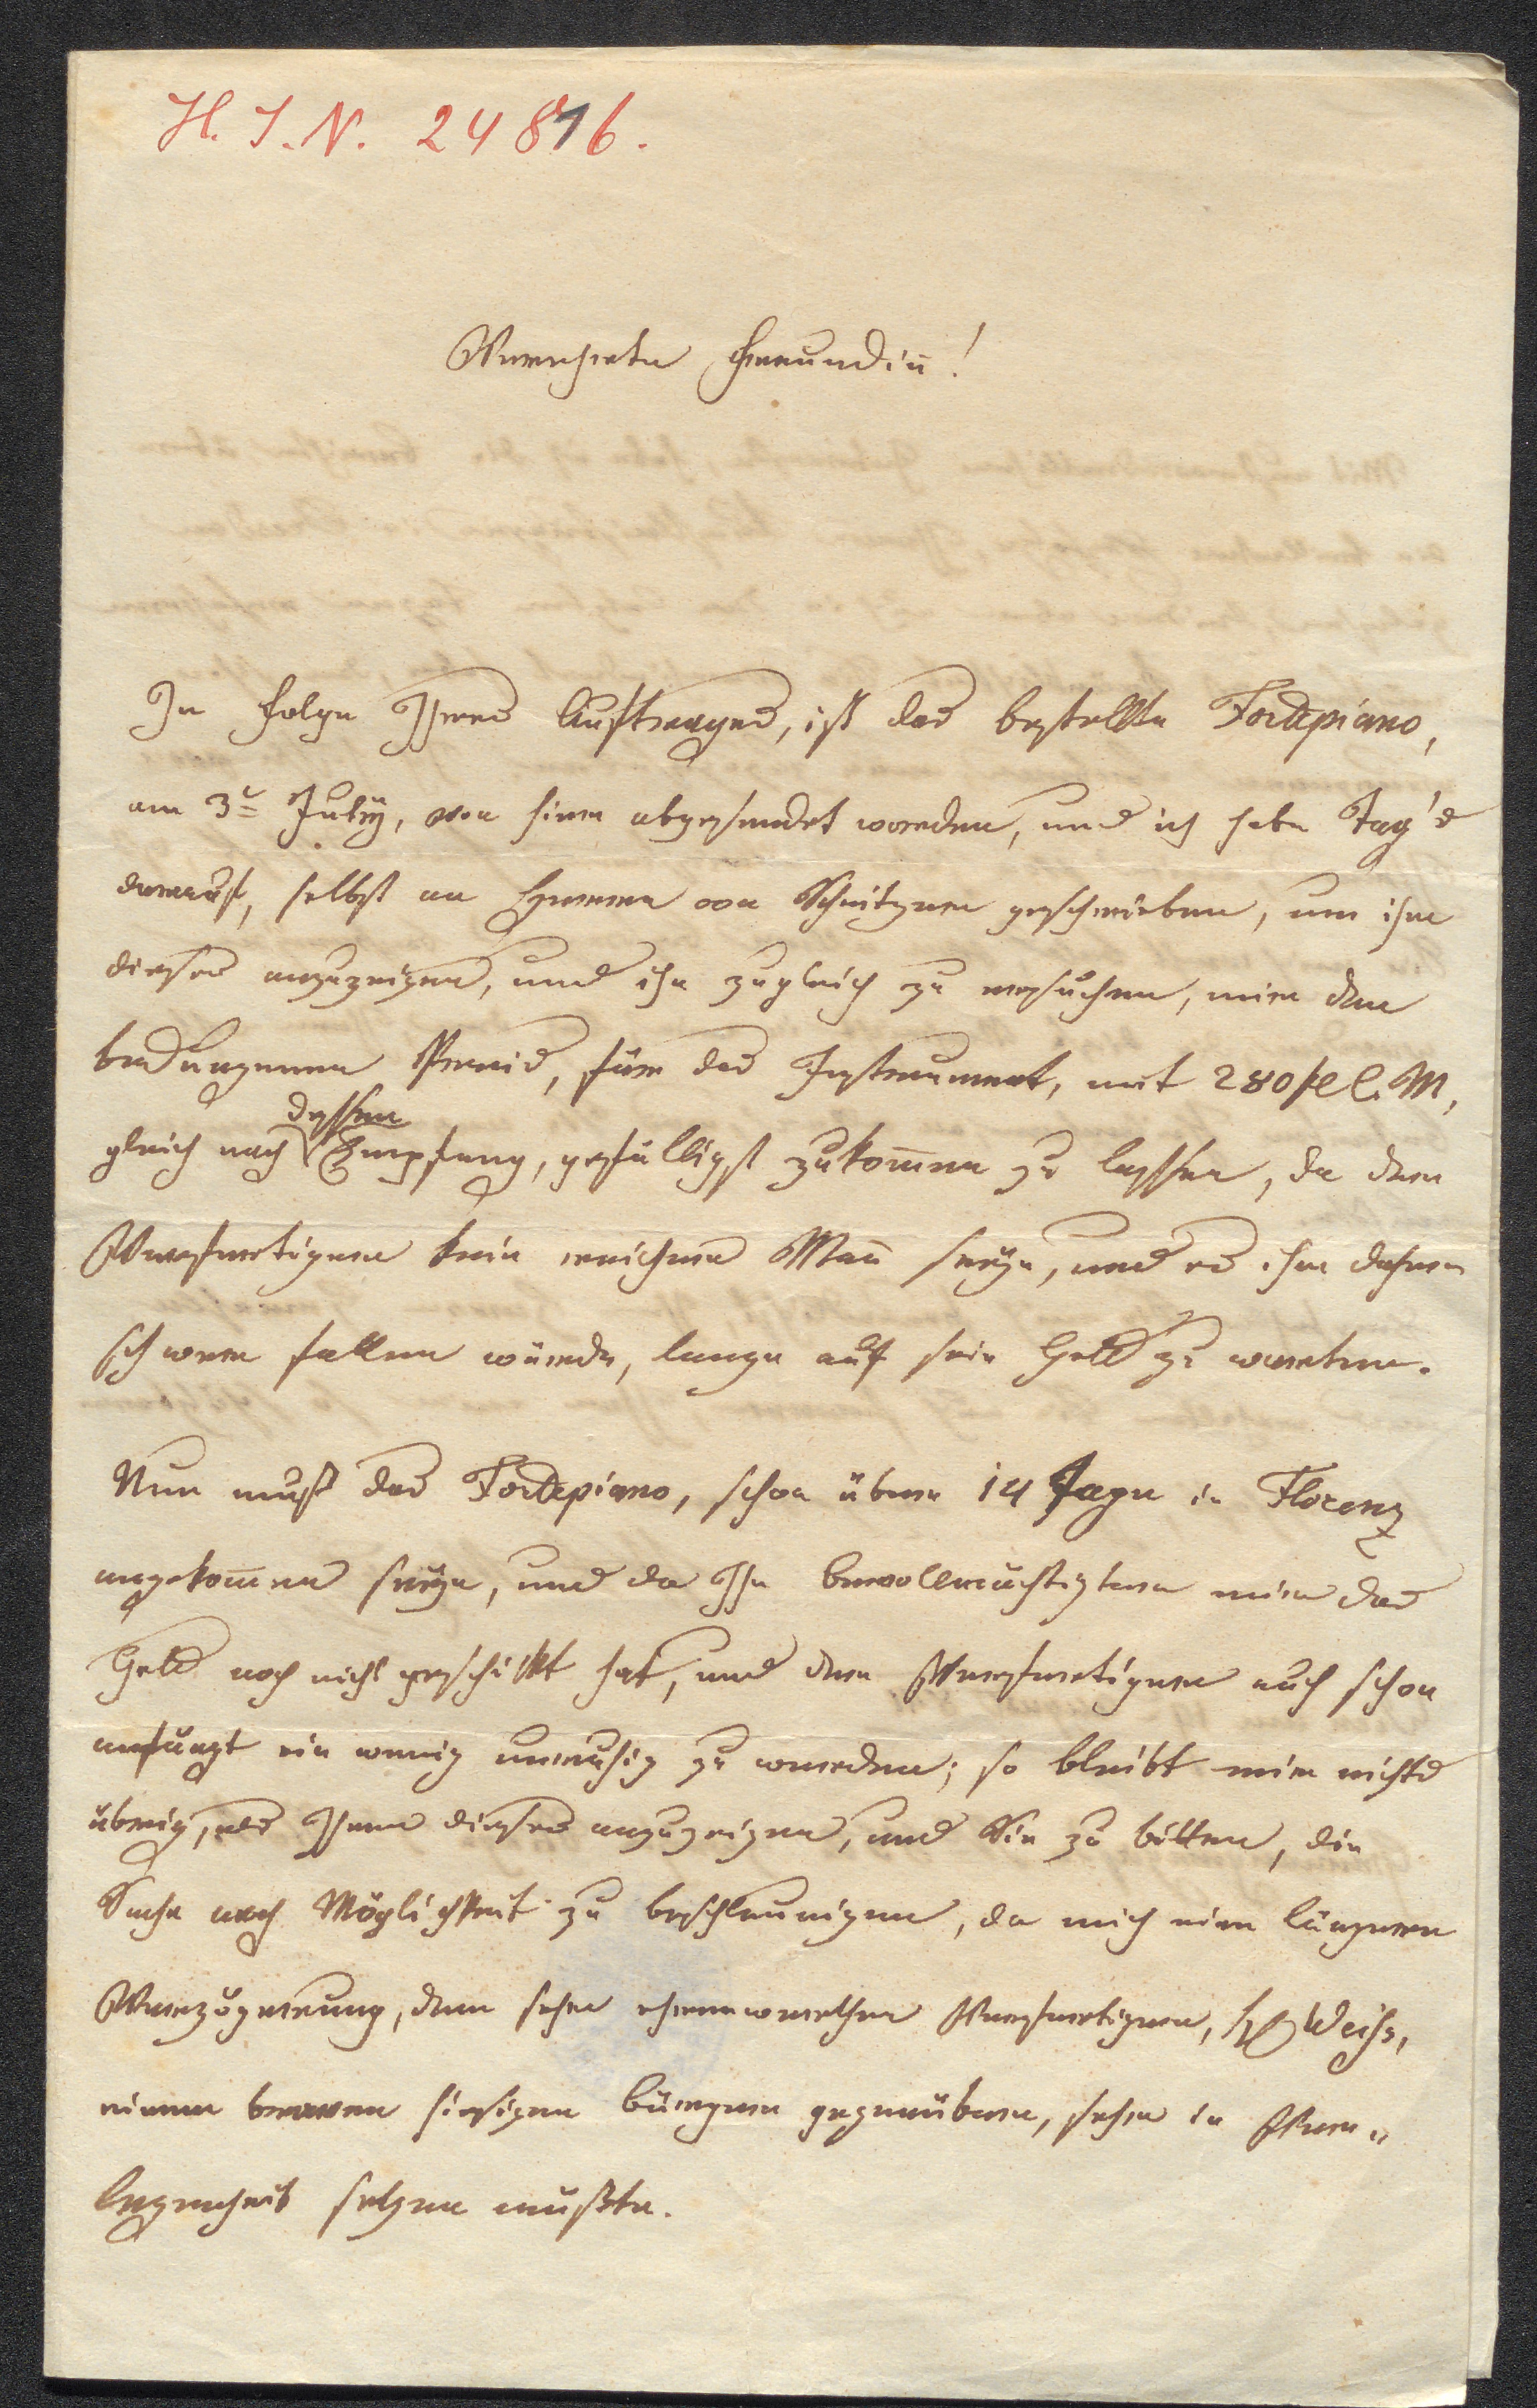 H. I. N. 24816.
Verehrte Freundin̄!
In Folge Ihres Auftrages, ist das bestellte Fortepiano,
am 3t July, von hier abgesendet worden, und ich habe Tag's
darauf, selbst an Herrn von Schnitzer geschrieben, um ihm
dieses anzuzeigen, und ihn zugleich zu ersuchen, mir den
bedungenen Preis, für das Instrument, mit 280 fl C. M,
dessen
gleich nach Empfang, gefälligst zukom̄en zu lassen, da der
Verfertiger kein reicher Man̄ seye, und es ihm daher
schwer fallen würde, lange auf sein Geld zu warten.
Nun muß das Fortepiano, schon über 14 Tage in Florenz
angekom̄en seyn, und da Ihr Bevollmächtigter mir das
Geld noch nicht geschikt hat, und der Verfertiger auch schon
anfängt ein wenig unruhig zu werden; so bleibt mir nichts
übrig, als Ihnen dieses anzuzeigen, und Sie zu bitten, die
Sache nach Möglichkeit zu beschleunigen, da mich eine längere
Verzögerung, dem sehr ehrenwerthen Verfertiger, H Weiss,
einem braven hiesigen Bürger gegenüber, sehr in Ver„
legenheit setzen müßte.